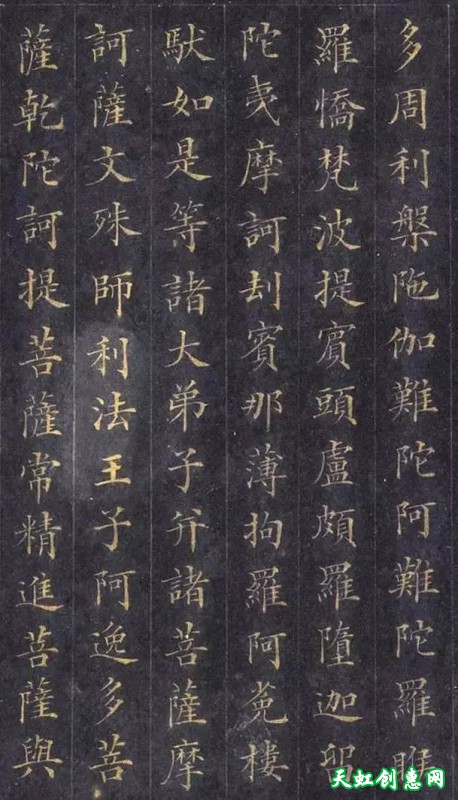 多周利槃陁伽難陀阿難陀羅睺
羅憍梵波提賓頭盧頗羅墮迦留
陀夷摩訶刼賓那薄拘羅阿㝹樓
馱如是等諸大弟子并諸菩薩摩
訶薩文殊師利法王子阿逸多菩
薩乾陀訶提菩薩常精進菩薩與
天虹创惠网